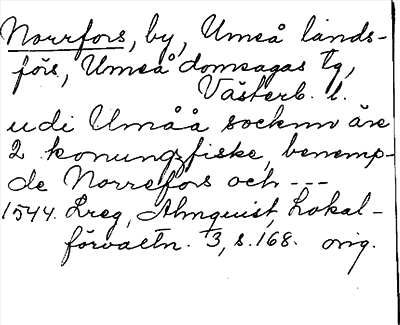 Norrfors, by, Umeå lands-
förs, Umeå domsagas tg,
Västerb. l.
udi Umåå socknn äre
2 konungsfiske, benemp-
de Norrefors och ---
1544. Lreg, Almquist, Lokal-
förvaltn. 3, s. 168. orig.